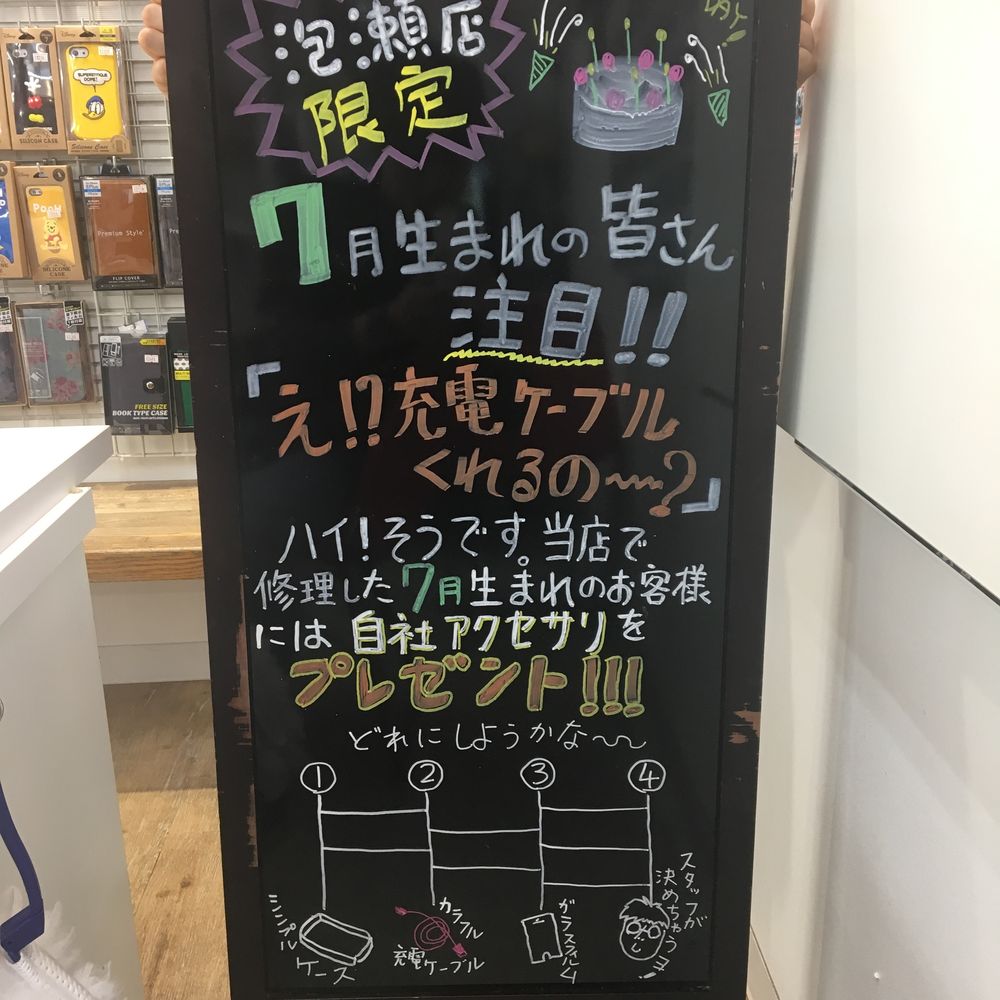 泡瀬店
限定
DAY!
7月生まれの皆さん
注目!!
「え!?充電ケーブル
くれるの〜?」
ハイ!そうです。当店で
修理した7月生まれのお客様
には自社アクセサリを
プレゼント!!!
どれにしようかな〜
① ② ③ ④
シンプル
ケース
カラフル
充電ケーブル
ガラスフィルム
スタッフが
決めちゃうよ!
SILICON CASE
SUPERSTITIOUS
DOPE!
Silicone Case
Pooh
SILICONE
CASE
Premium Style
FLIP COVER
FREE SIZE
BOOK TYPE CASE